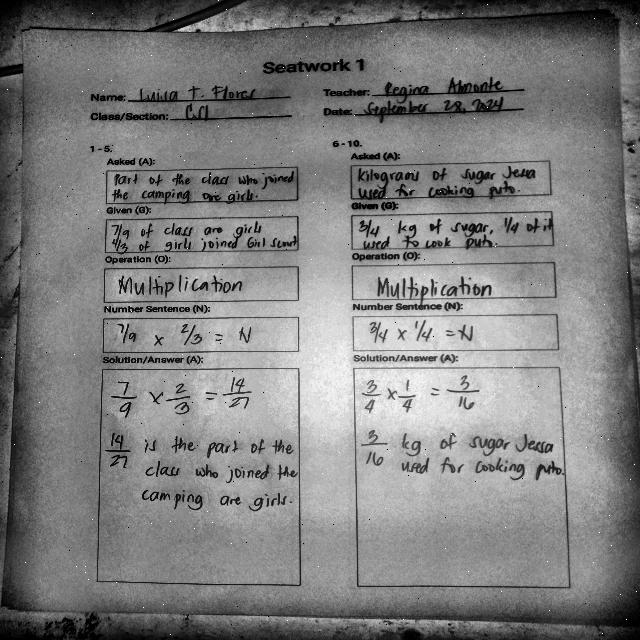 Seatwork 1
Name: Luisa T. Flores
Teacher: Regina Almonte
Class/Section:
Date: September 28, 2024
1 - 5.
Asked (A):
Part of the class who joined
the camping are girls.
Given (G):
7/9 of class are girls
2/3 of girls joined Girl Scout
Operation (O):
Multiplication
Number Sentence (N):
7/9 x 2/3 = N
Solution/Answer (A):
7/9 x 2/3 = 14/27
14/27 is the part of the
class who joined the
camping are girls.
6 - 10.
Asked (A):
Kilograms of sugar Jessa
used for cooking puto.
Given (G):
3/4 kg of sugar, 1/4 of it
used to cook puto
Operation (O):
Multiplication
Number Sentence (N):
3/4 x 1/4 = N
Solution/Answer (A):
3/4 x 1/4 = 3/16
3/16 kg of sugar Jessa
used for cooking puto.